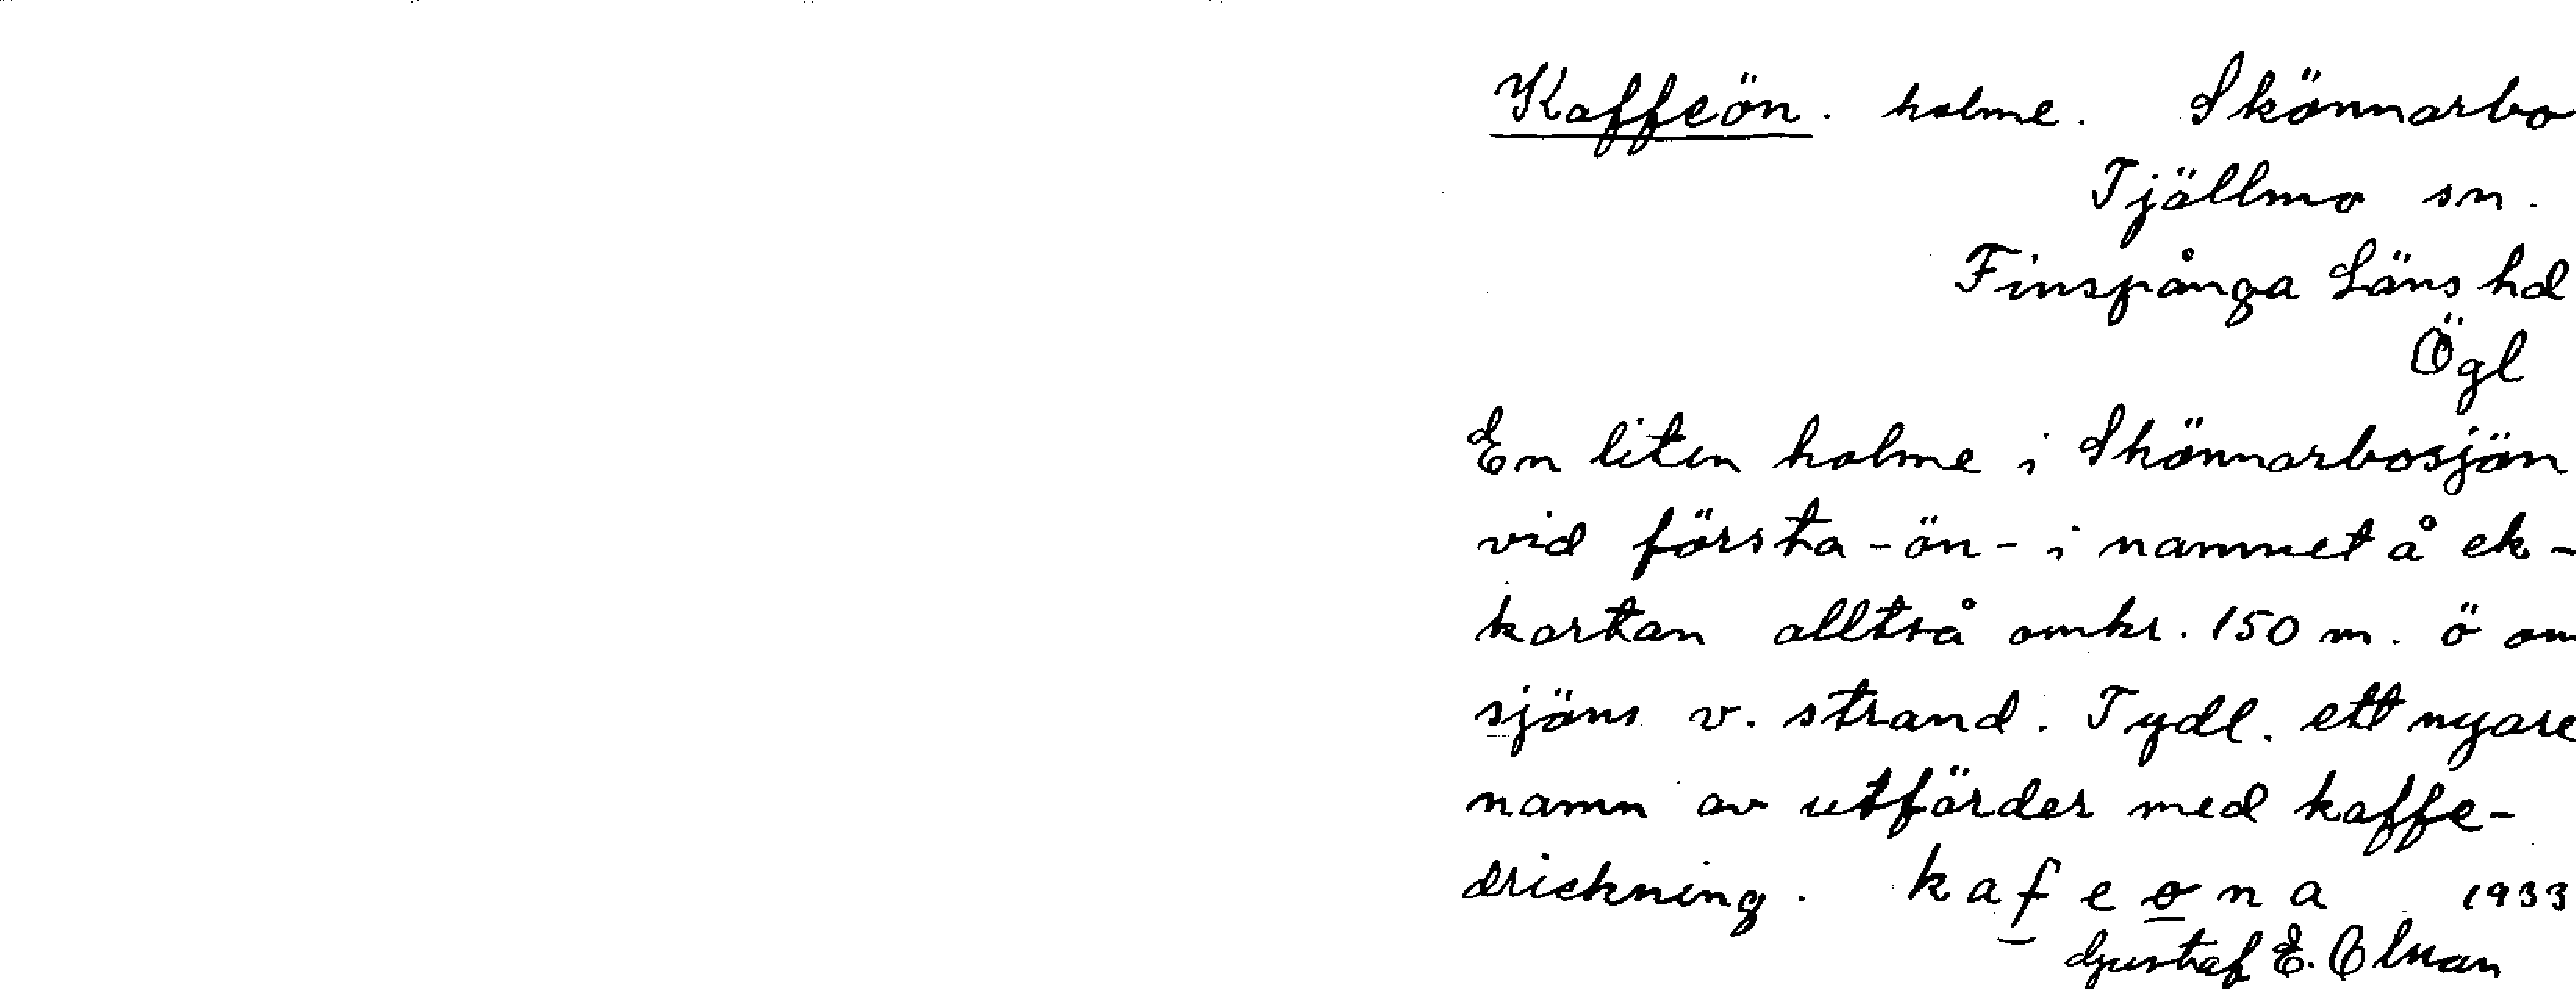 Kaffeön. holme. Skönnarbo
Tjällmo sn.
Finspånga Läns hd
Ögl
En liten holme i Skönnarbosjön
vid första -ön- i namnet å ek-
kartan alltså omkr. 150 m. ö om
sjöns v. strand. Tydl. ett nyare
namn av utfärder med kaffe-
drickning. kafeøna 1933
Gustaf E. Olman